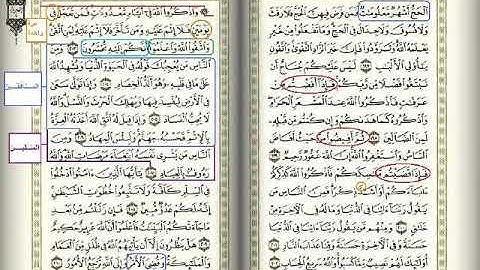 الحج أشهر معلومات فمن فرض فيهن الحج فلا رفث
ولا فسوق ولا جدال في الحج وما تفعلوا من خير يعلمه
الله وتزودوا فإن خير الزاد التقوى واتقون
يأولي الألباب ١٩٧ ليس عليكم جناح أن
تبتغوا فضلا من ربكم فإذا أفضتم من
عرفات فاذكروا الله عند المشعر الحرام
واذكروه كما هداكم وإن كنتم من قبله لمن
الضالين ١٩٨ ثم أفيضوا من حيث أفاض
الناس واستغفروا الله إن الله غفور رحيم ١٩٩
فإذا قضيتم مناسككم فاذكروا الله كذكركم
ءاباءكم أو أشد ذكرا فمن الناس من
يقول ربنا ءاتنا في الدنيا وما له في الآخرة من
خلاق ٢٠٠ ومنهم من يقول ربنا ءاتنا في الدنيا
حسنة وفي الآخرة حسنة وقنا عذاب النار ٢٠١
أولئك لهم نصيب مما كسبوا والله سريع الحساب ٢٠٢
واذكروا الله في أيام معدودات فمن تعجل في
يومين فلا إثم عليه ومن تأخر فلا إثم عليه لمن اتقى
واتقوا الله واعلموا أنكم إليه تحشرون ٢٠٣ ومن
الناس من يعجبك قوله في الحياة الدنيا ويشهد الله
على ما في قلبه وهو ألد الخصام ٢٠٤ وإذا تولى سعى
في الأرض ليفسد فيها ويهلك الحرث والنسل والله
لا يحب الفساد ٢٠٥ وإذا قيل له اتق الله أخذته العزة
بالإثم فحسبه جهنم ولبئس المهاد ٢٠٦ ومن
الناس من يشري نفسه ابتغاء مرضات الله والله
رءوف بالعباد ٢٠٧ يأيها الذين ءامنوا ادخلوا
في السلم كافة ولا تتبعوا خطوات الشيطان
إنه لكم عدو مبين ٢٠٨ فإن زللتم من بعد
ما جاءتكم البينات فاعلموا أن الله عزيز حكيم ٢٠٩
هل ينظرون إلا أن يأتيهم الله في ظلل من الغمام
والملائكة وقضي الأمر وإلى الله ترجع الأمور ٢١٠
المنافقين